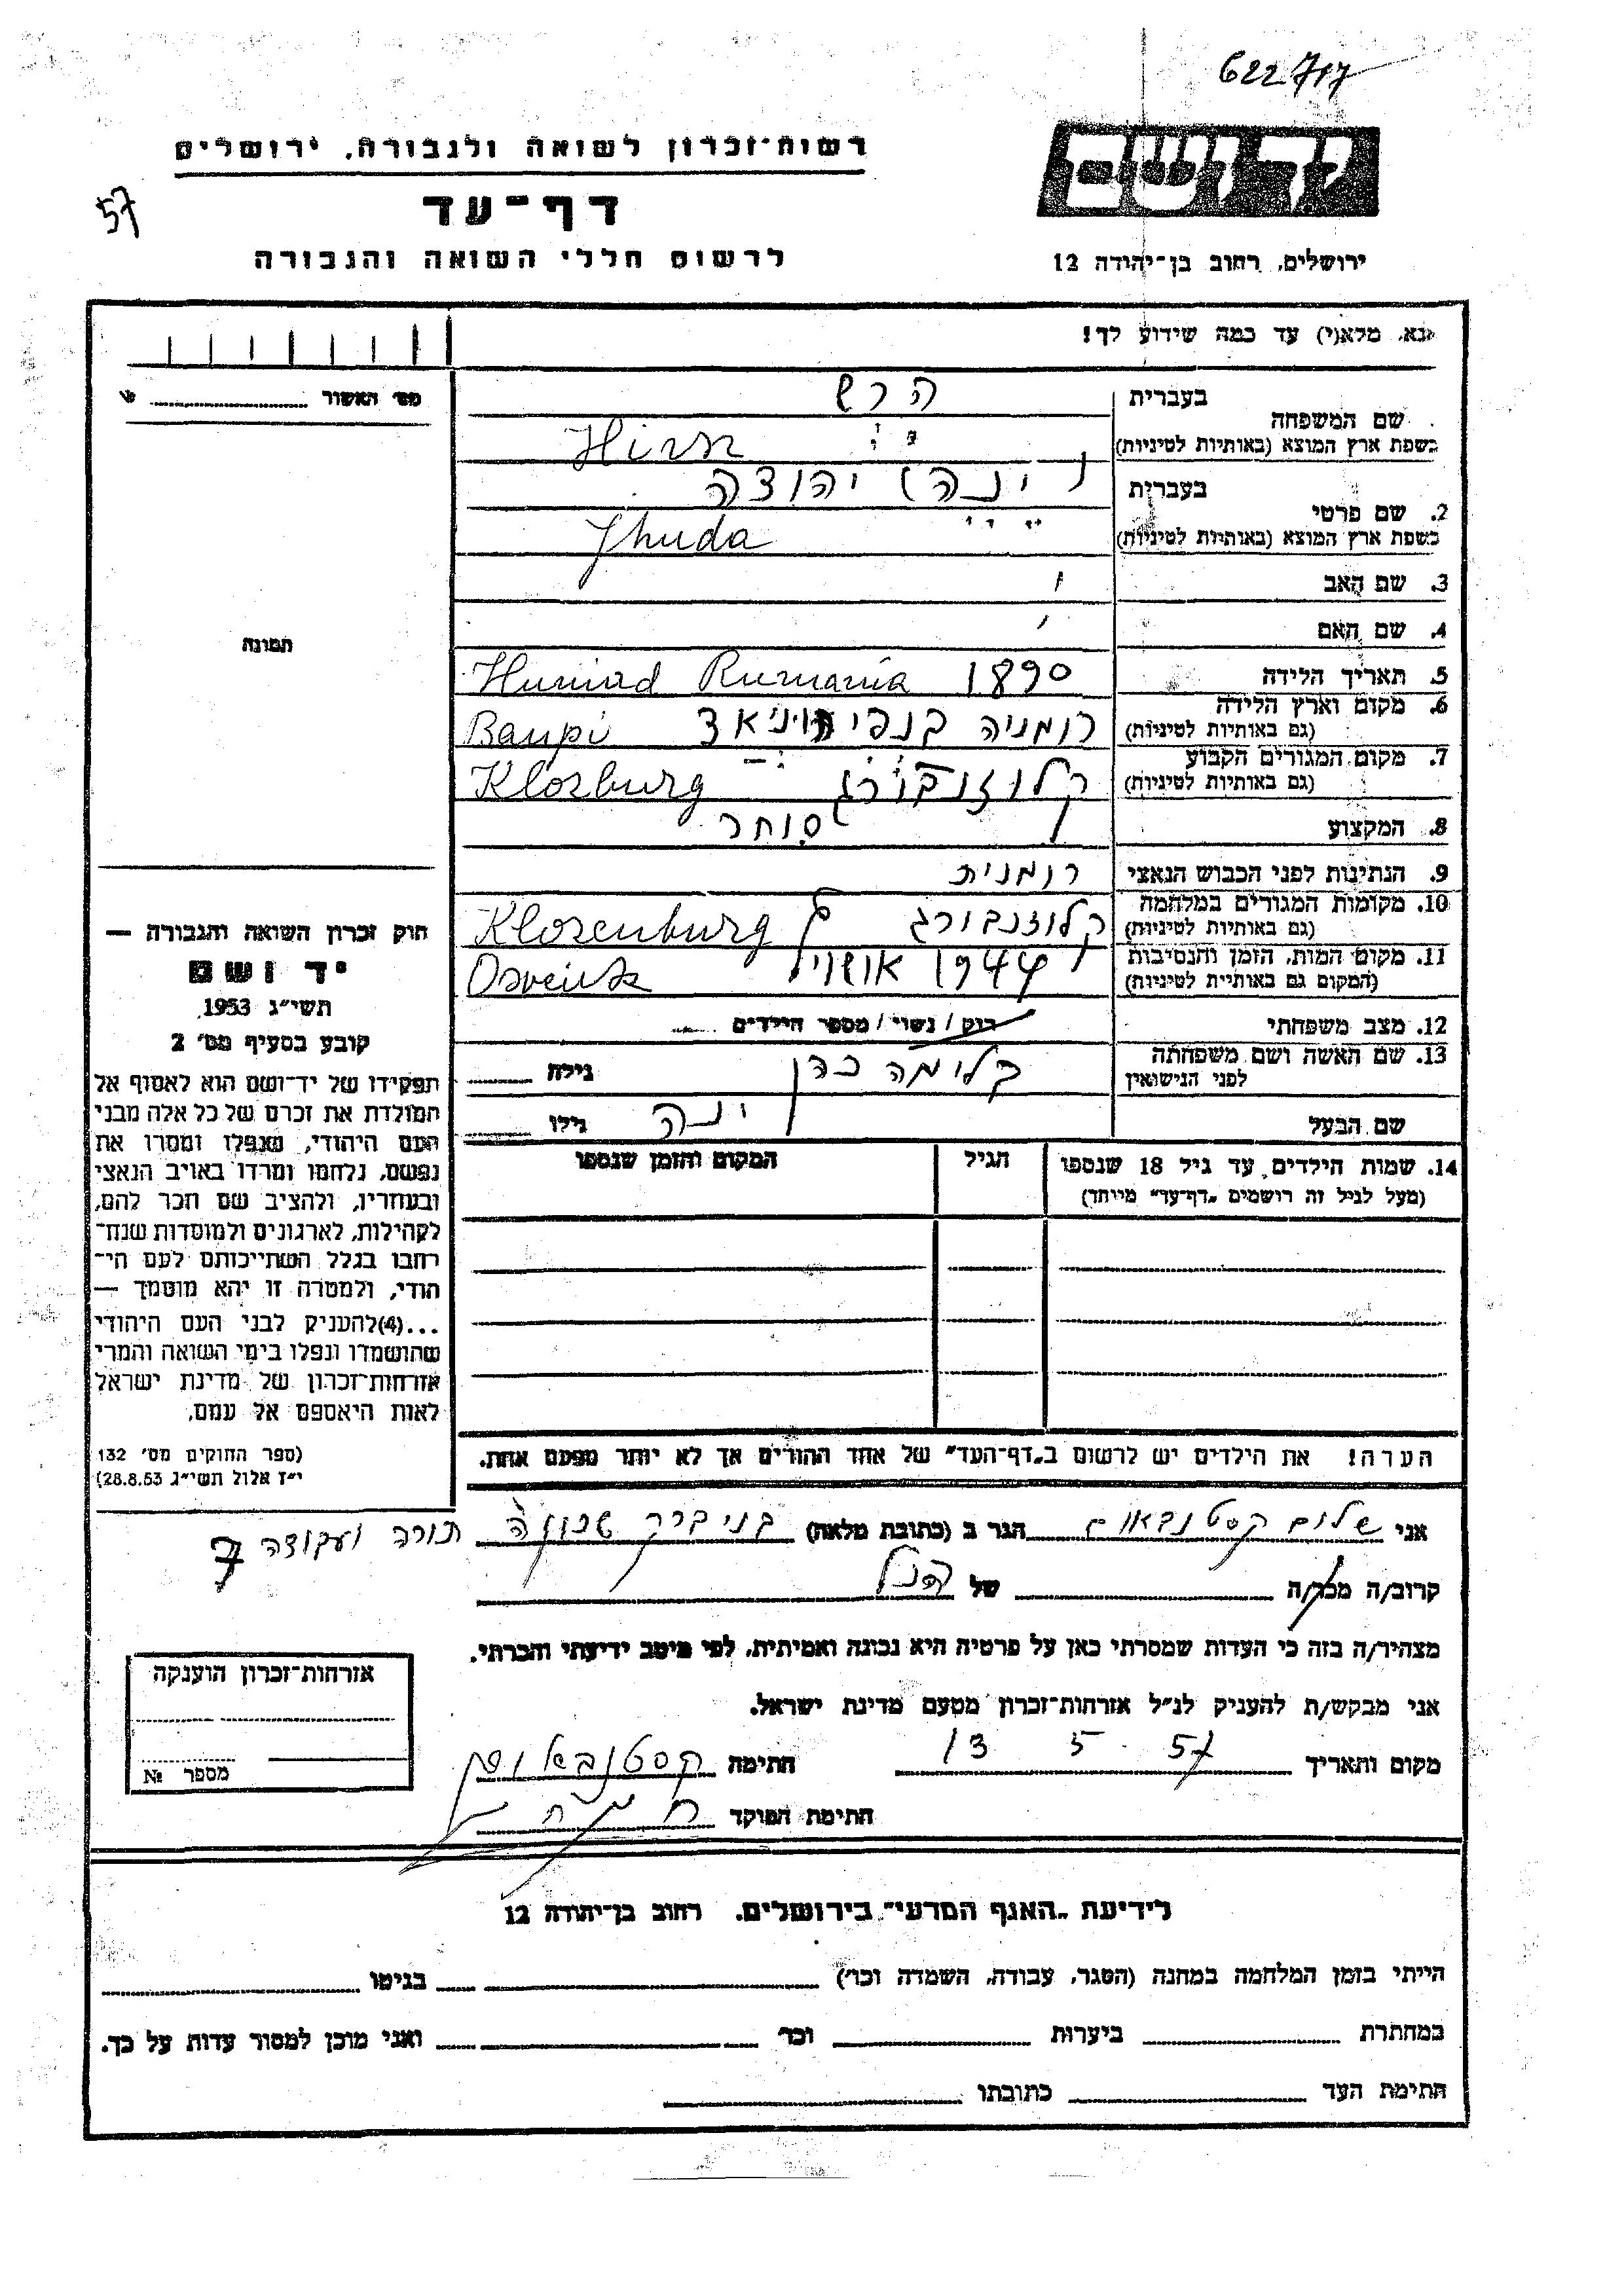 622717
רשות-זכרון לשואה ולגבורה, ירושלים
57
דף-עד
לרשום חללי השואה והגבורה
יד ושם
ירושלים, רחוב בן-יהודה 12
נא, מלא(י) עד כמה שידוע לך!
מס' האשור
תמונה
בעברית
הרש
שם המשפחה
בשפת ארץ המוצא (באותיות לטיניות)
Hirsz
בעברית
יהודה
2. שם פרטי
בשפת ארץ המוצא (באותיות לטיניות)
Jhuda
3. שם האב
4. שם האם
5. תאריך הלידה
1890 Huniad Rumania
6. מקום וארץ הלידה
(גם באותיות לטיניות)
רומניה בנפי הוניאד Banpi
7. מקום המגורים הקבוע
(גם באותיות לטיניות)
קלוזנבורג Klozburg
8. המקצוע
סוחר
9. הנתינות לפני הכבוש הנאצי
רומנית
10. מקומות המגורים במלחמה
(גם באותיות לטיניות)
קלוזנבורג Klozenburg
11. מקום המות, הזמן והנסיבות
(המקום גם באותיות לטיניות)
1944
12. מצב משפחתי
רוק/נשוי/מספר הילדים
13. שם האשה ושם משפחתה
לפני הנישואין
כהן
גילה
שם הבעל
יונה
גילו
14. שמות הילדים עד גיל 18 שנספו
(מעל לגיל זה רושמים "דף-עד" מיוחד)
הגיל
המקום והזמן שנספו
חוק זכרון השואה והגבורה —
יד ושם
תשי"ג 1953
קובע בסעיף מס' 2
תפקידו של יד-ושם הוא לאסוף אל
המולדת את זכרם של כל אלה מבני
העם היהודי, שנפלו ומסרו את
נפשם, נלחמו ומרדו באויב הנאצי
ובעוזריו, ולהציב שם וזכר להם,
לקהילות, לארגונים ולמוסדות שנח-
רבו בגלל השתייכותם לעם הי-
הודי, ולמטרה זו יהא מוסמך —
...(4)להעניק לבני העם היהודי
שהושמדו ונפלו בימי השואה והמרי
אזרחות-זכרון של מדינת ישראל
לאות היאספם אל עמם.
(ספר החוקים מס' 132
י"ז אלול תשי"ג 28.8.53)
הערה! את הילדים יש לרשום ב"דף-העד" של אחד ההורים אך לא יותר מפעם אחת.
אני שלום קסטנבאום הגר ב (כתובת מלאה) בני ברק שכונה תורה ועבודה 7
קרוב/ה מכר/ה של הנ"ל
מצהיר/ה בזה כי העדות שמסרתי כאן על פרטיה היא נכונה ואמיתית, לפי מיטב ידיעתי והכרתי.
אני מבקש/ת להעניק לנ"ל אזרחות-זכרון מטעם מדינת ישראל.
מקום ותאריך 13 5 57 חתימה קסטנבאום
חתימת הפוקד
אזרחות-זכרון הוענקה
מספר №
לידיעת "האגף המדעי" בירושלים, רחוב בן-יהודה 12
הייתי בזמן המלחמה במחנה (הסגר, עבודה, השמדה וכו') בגיטו
במחתרת ביערות וכו' ואני מוכן למסור עדות על כך.
חתימת העד כתובתו